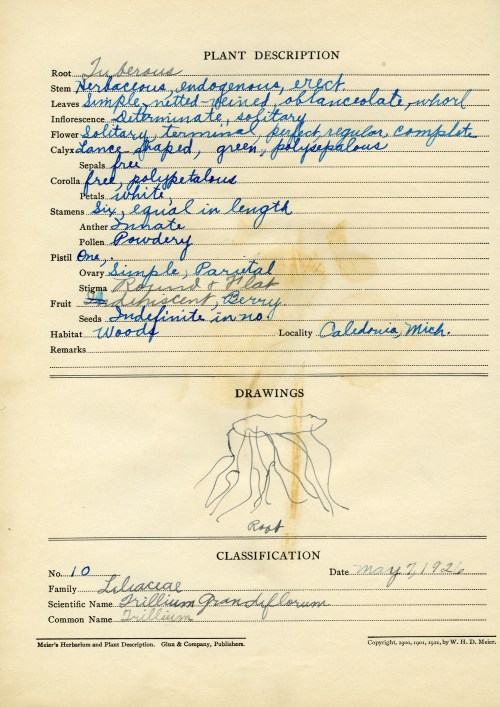 PLANT DESCRIPTION
Root Tuberous
Stem Herbaceous, endogenous, erect
Leaves Simple, netted-veined, oblanceolate, whorl
Inflorescence Determinate, solitary
Flower Solitary, terminal, perfect, regular, complete
Calyx Lance shaped, green, polysepalous
Sepals free
Corolla free, polypetalous
Petals white
Stamens Six, equal in length
Anther Innate
Pollen Powdery
Pistil One,.
Ovary Simple, Parietal
Stigma Round & Flat
Fruit Indehiscent, Berry.
Seeds Indefinite in no.
Habitat Woods Locality Caledonia, Mich.
Remarks
DRAWINGS
Root
CLASSIFICATION
No. 10 Date May 7, 1926
Family Liliaceae
Scientific Name Trillium Grandiflorum
Common Name Trillium
Meier's Herbarium and Plant Description. Ginn & Company, Publishers. Copyright, 1900, 1901, 1921, by W. H. D. Meier.